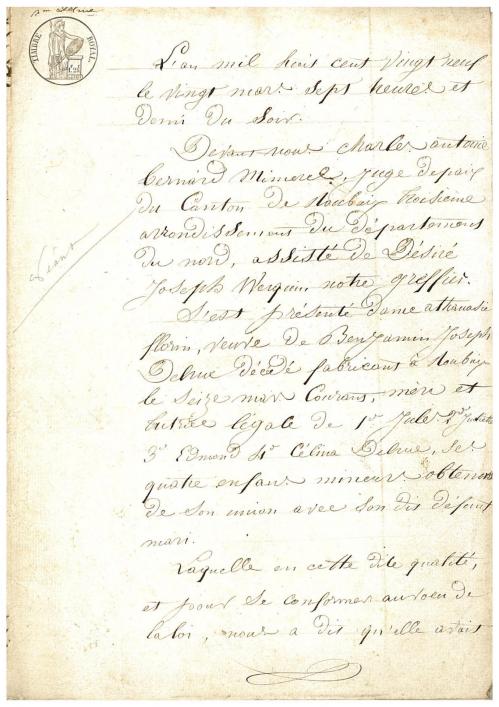 TIMBRE ROYAL
L'an mil huit cent vingt neuf
le vingt mars sept heures et
demi du soir.
Devant nous Charles antoine
bernard Mimerel, Juge depaix
du Canton de Roubaix troisième
arrondissement du département
du nord, assisté de Désiré
Joseph Werquin, notre greffier.
S'est présenté dame athanasie
florin, veuve de Benjamin Joseph
Delrue décédé fabricant à Roubaix
le seize mars Courant, mère et
tutrice légale de 1° Jules 2°
3° Edmond 4° Célina Delrue, ses
quatre enfans mineurs obtenus
de son union avec son dit défunt
mari.
Laquelle en cette dite qualité,
et pour se conformer au voeu de
la loi, nous a dit qu'elle avait